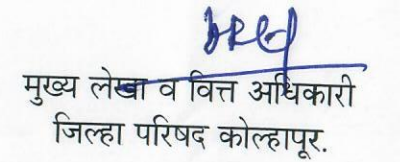 मुख्य लेखा व वित्त अधिकारी
जिल्हा परिषद कोल्हापूर.